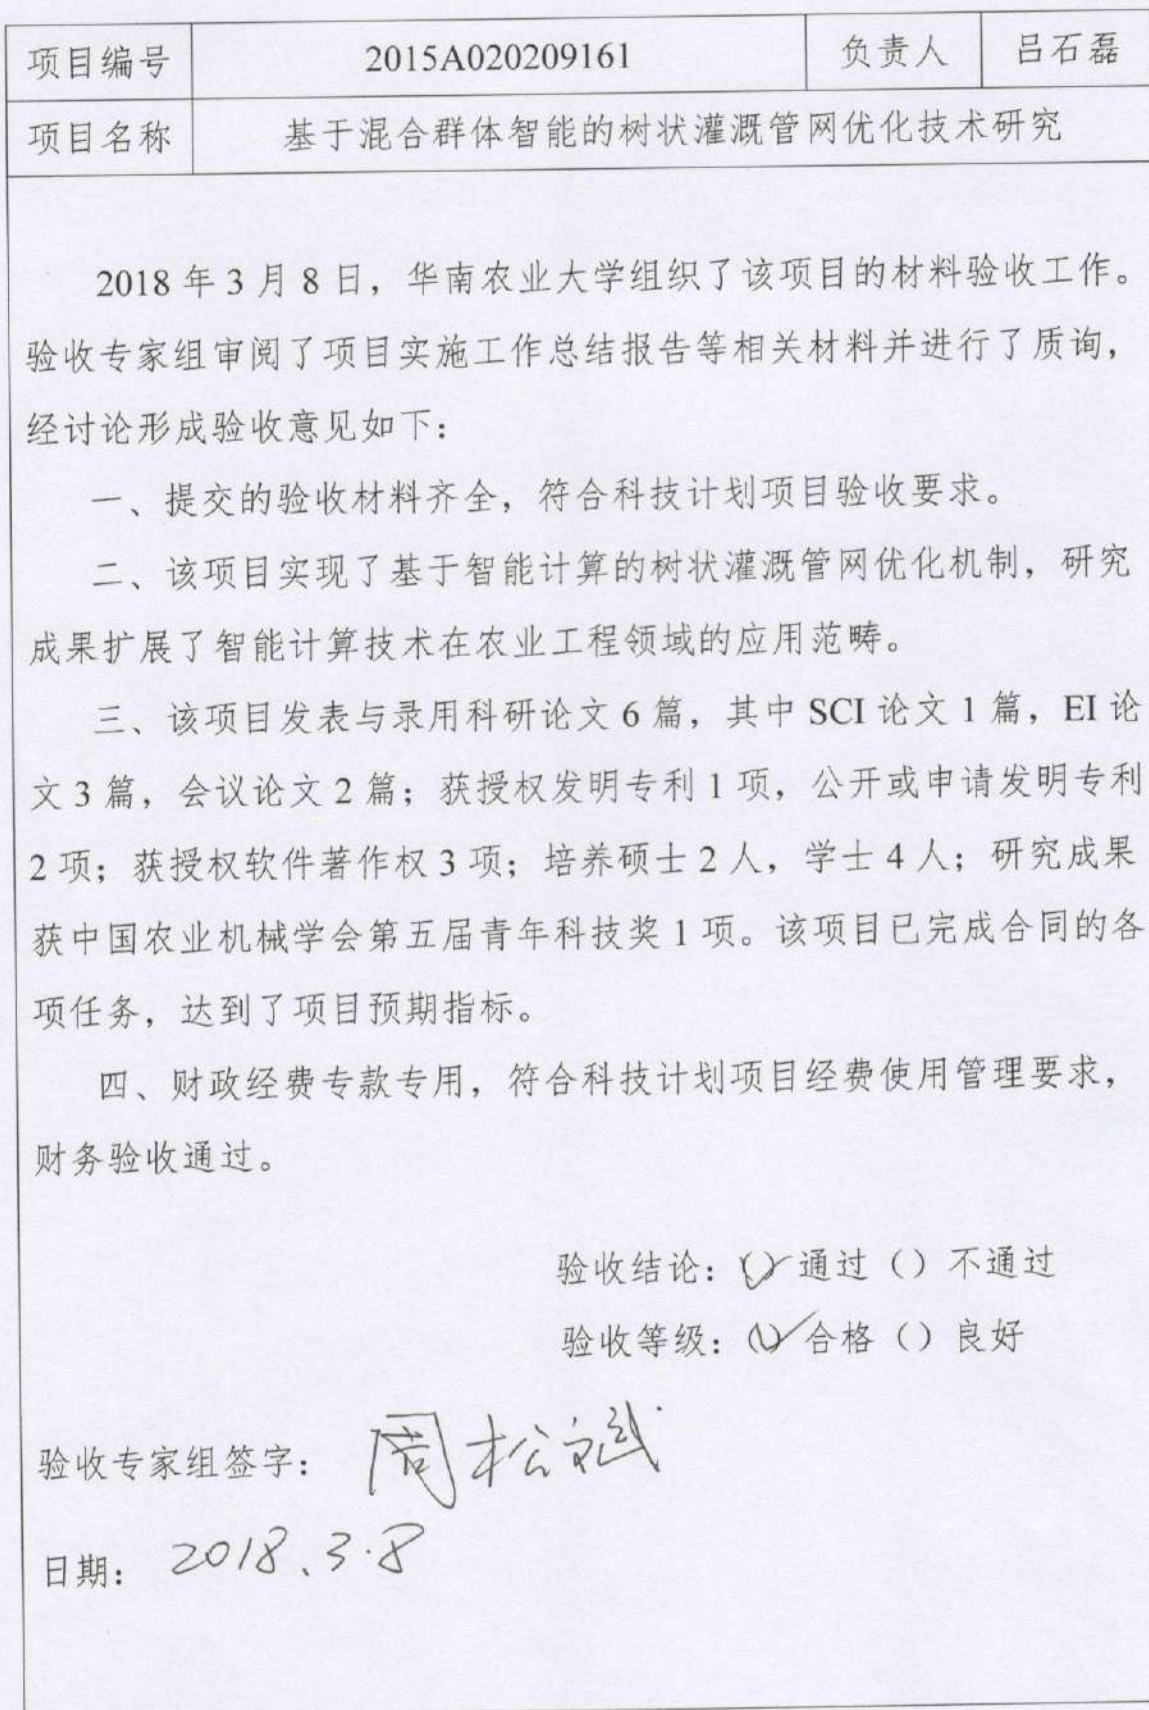 项目编号 2015A020209161 负责人 吕石磊
项目名称 基于混合群体智能的树状灌溉管网优化技术研究
2018 年 3 月 8 日，华南农业大学组织了该项目的材料验收工作。
验收专家组审阅了项目实施工作总结报告等相关材料并进行了质询，
经讨论形成验收意见如下：
一、提交的验收材料齐全，符合科技计划项目验收要求。
二、该项目实现了基于智能计算的树状灌溉管网优化机制，研究
成果扩展了智能计算技术在农业工程领域的应用范畴。
三、该项目发表与录用科研论文 6 篇，其中 SCI 论文 1 篇，EI 论
文 3 篇，会议论文 2 篇；获授权发明专利 1 项，公开或申请发明专利
2 项；获授权软件著作权 3 项；培养硕士 2 人，学士 4 人；研究成果
获中国农业机械学会第五届青年科技奖 1 项。该项目已完成合同的各
项任务，达到了项目预期指标。
四、财政经费专款专用，符合科技计划项目经费使用管理要求，
财务验收通过。
验收结论：(✓) 通过（）不通过
验收等级：(✓) 合格（）良好
验收专家组签字： 周松斌
日期： 2018.3.8